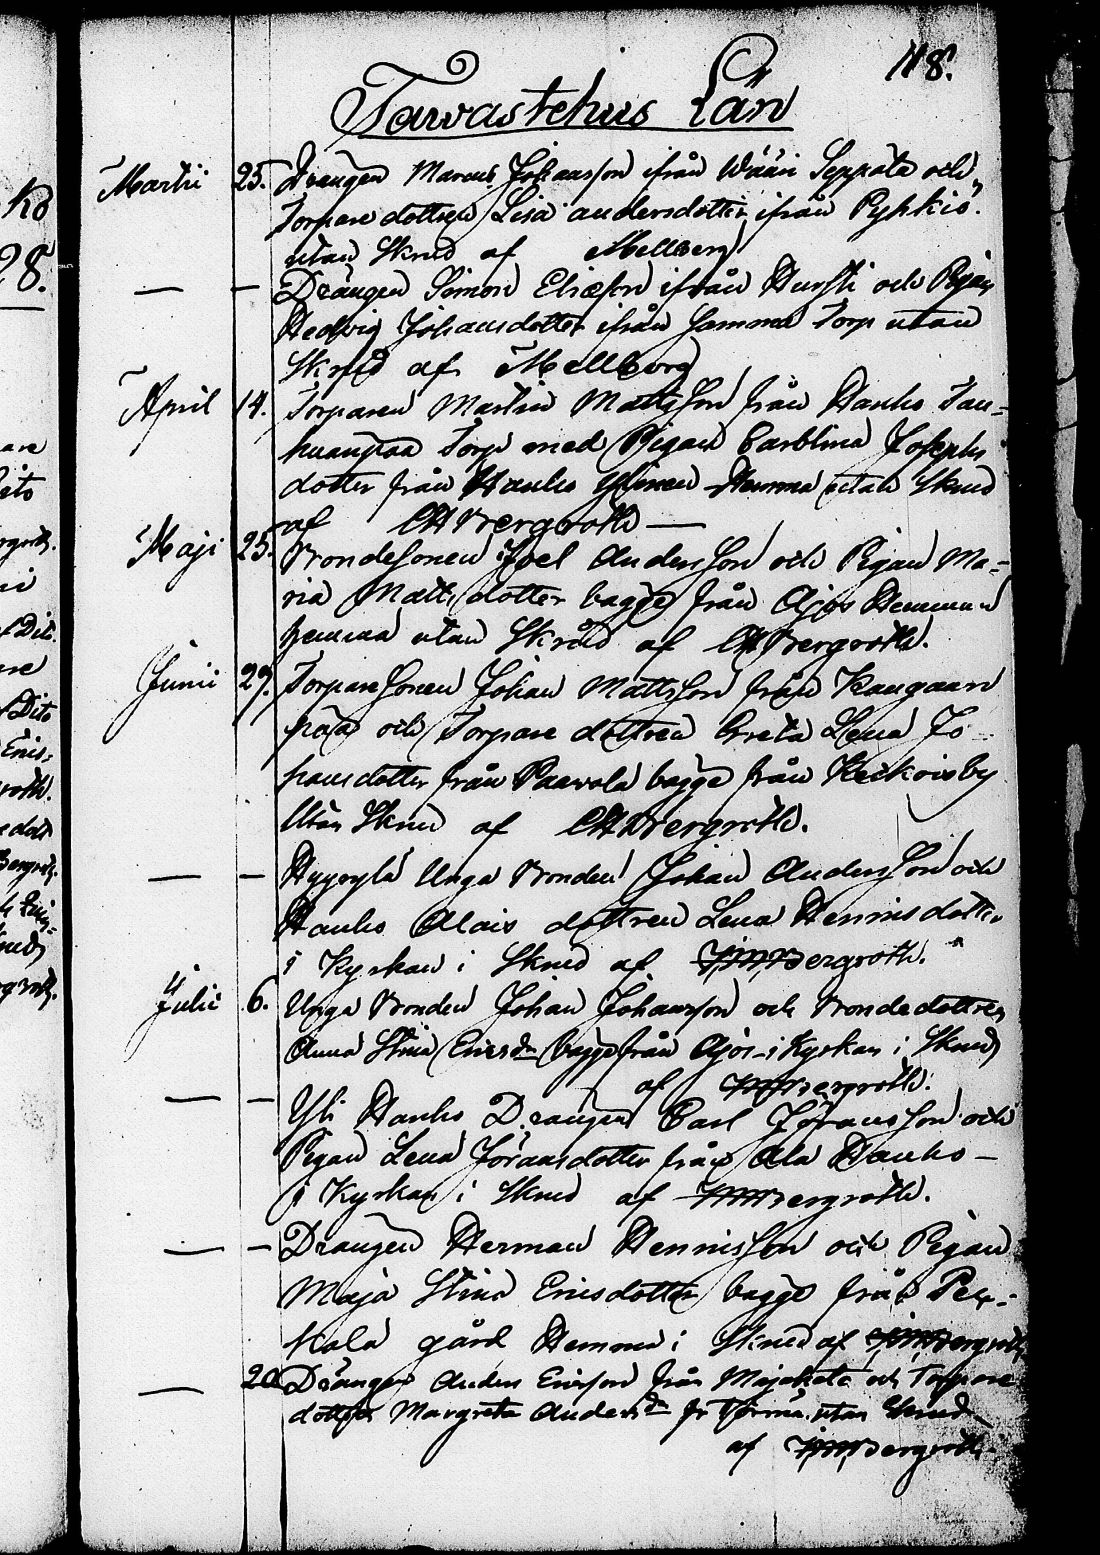 118.
Tawastehus Län
Martii 25. Drängen Marcus Johansson ifrån Wääri Seppälä och
Torpare dottren Lisa andersdotter ifrån Pyhkiö.
utan Skrud af Mellberg
— — Drängen Simon Ericsson ifrån Hursti och Pigan
Hedvig Johansdotter ifrån Samma Torp utan
Skrud af Mellberg
April 14. Torparen Martin Mattsson från Hauho Tan=
huanpää Torp med Pigan Carolina Josephs
dotter från Hauho Ylönen Hemma utan Skrud
af CHBergroth —
Maji 25. Bondesonen Joel Andersson och Pigan Ma=
ria Matts dotter bägge från Ajos Hemman
hemma utan Skrud af CHBergroth.
Junii 29. Torpare Sonen Johan Mattsson från Kangaan
pää och Torpare dottren Greta Lena Jo
hansdotter från Paavola bägge från Keikoisby
Utan Skrud af CHBergroth.
— — Hyyrylä Unga Bonden Johan Andersson och
Hauho Alais dottren Lena Henricsdotter
i Kyrkan i Skrud af Bergroth.
Julii 6. Unga Bonden Johan Johansson och Bondedottren
Anna Stina Ericsdr bägge från Ajos i Kyrkan i Skrud
af Bergroth.
— — Yli Hauho Drängen Carl Göransson och
Pigan Lena Göransdotter från Ala Hauho —
i Kyrkan i Skrud af Bergroth.
— — Drängen Herman Henricsson och Pigan
Maja Stina Ericsdotter bägge från Per=
kala gård Hemma i Skrud af Bergroth
— 20 Drängen Anders Ericsson från Majakala och Torpare
dottren Margreta Andersdr fr Törmä utan Skrud —
af Bergroth.